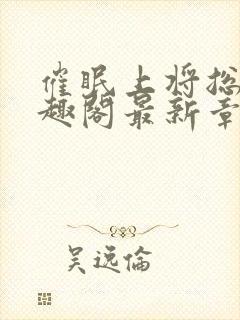 催眠上将总
趣阁最新章
吴远倫